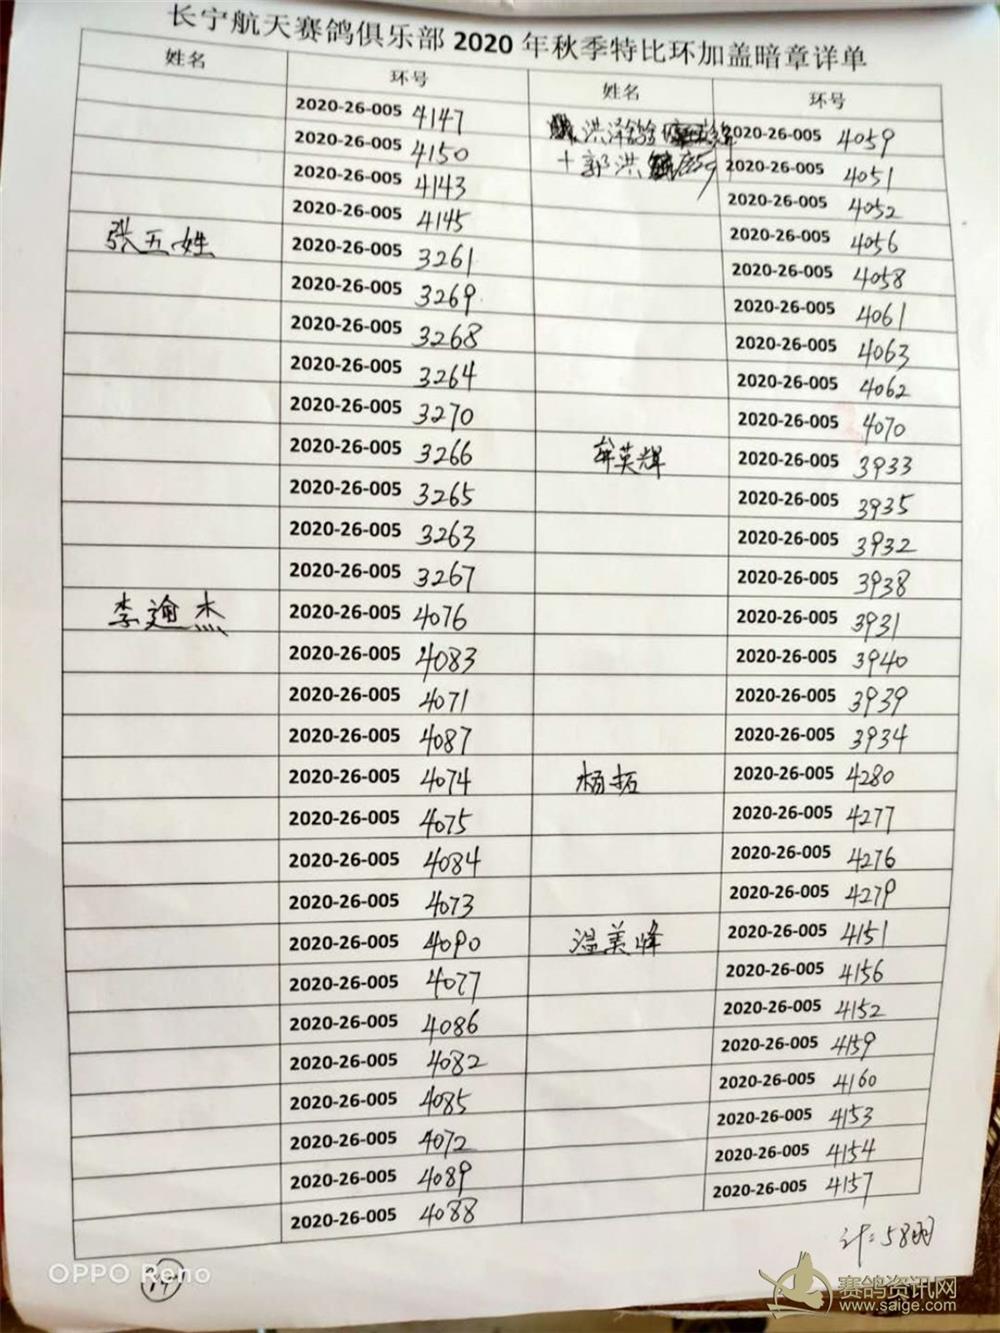 长宁航天赛鸽俱乐部 2020 年秋季特比环加盖暗章详单
姓名 环号 姓名 环号
2020-26-005 4147 洪泽 2020-26-005 4059
2020-26-005 4150 +郭洪 2020-26-005 4051
2020-26-005 4143 2020-26-005 4052
2020-26-005 4145 2020-26-005 4056
张五姓 2020-26-005 3261 2020-26-005 4058
2020-26-005 3269 2020-26-005 4061
2020-26-005 3268 2020-26-005 4063
2020-26-005 3264 2020-26-005 4062
2020-26-005 3270 2020-26-005 4070
2020-26-005 3266 牟英辉 2020-26-005 3933
2020-26-005 3265 2020-26-005 3935
2020-26-005 3263 2020-26-005 3932
2020-26-005 3267 2020-26-005 3938
李逾杰 2020-26-005 4076 2020-26-005 3931
2020-26-005 4083 2020-26-005 3940
2020-26-005 4071 2020-26-005 3939
2020-26-005 4087 2020-26-005 3934
2020-26-005 4074 杨拓 2020-26-005 4280
2020-26-005 4075 2020-26-005 4277
2020-26-005 4084 2020-26-005 4276
2020-26-005 4073 2020-26-005 4279
2020-26-005 4090 温美峰 2020-26-005 4151
2020-26-005 4077 2020-26-005 4156
2020-26-005 4086 2020-26-005 4152
2020-26-005 4082 2020-26-005 4159
2020-26-005 4085 2020-26-005 4160
2020-26-005 4072 2020-26-005 4153
2020-26-005 4089 2020-26-005 4154
2020-26-005 4088 2020-26-005 4157
计:58羽
OPPO Reno
赛鸽资讯网
www.saige.com